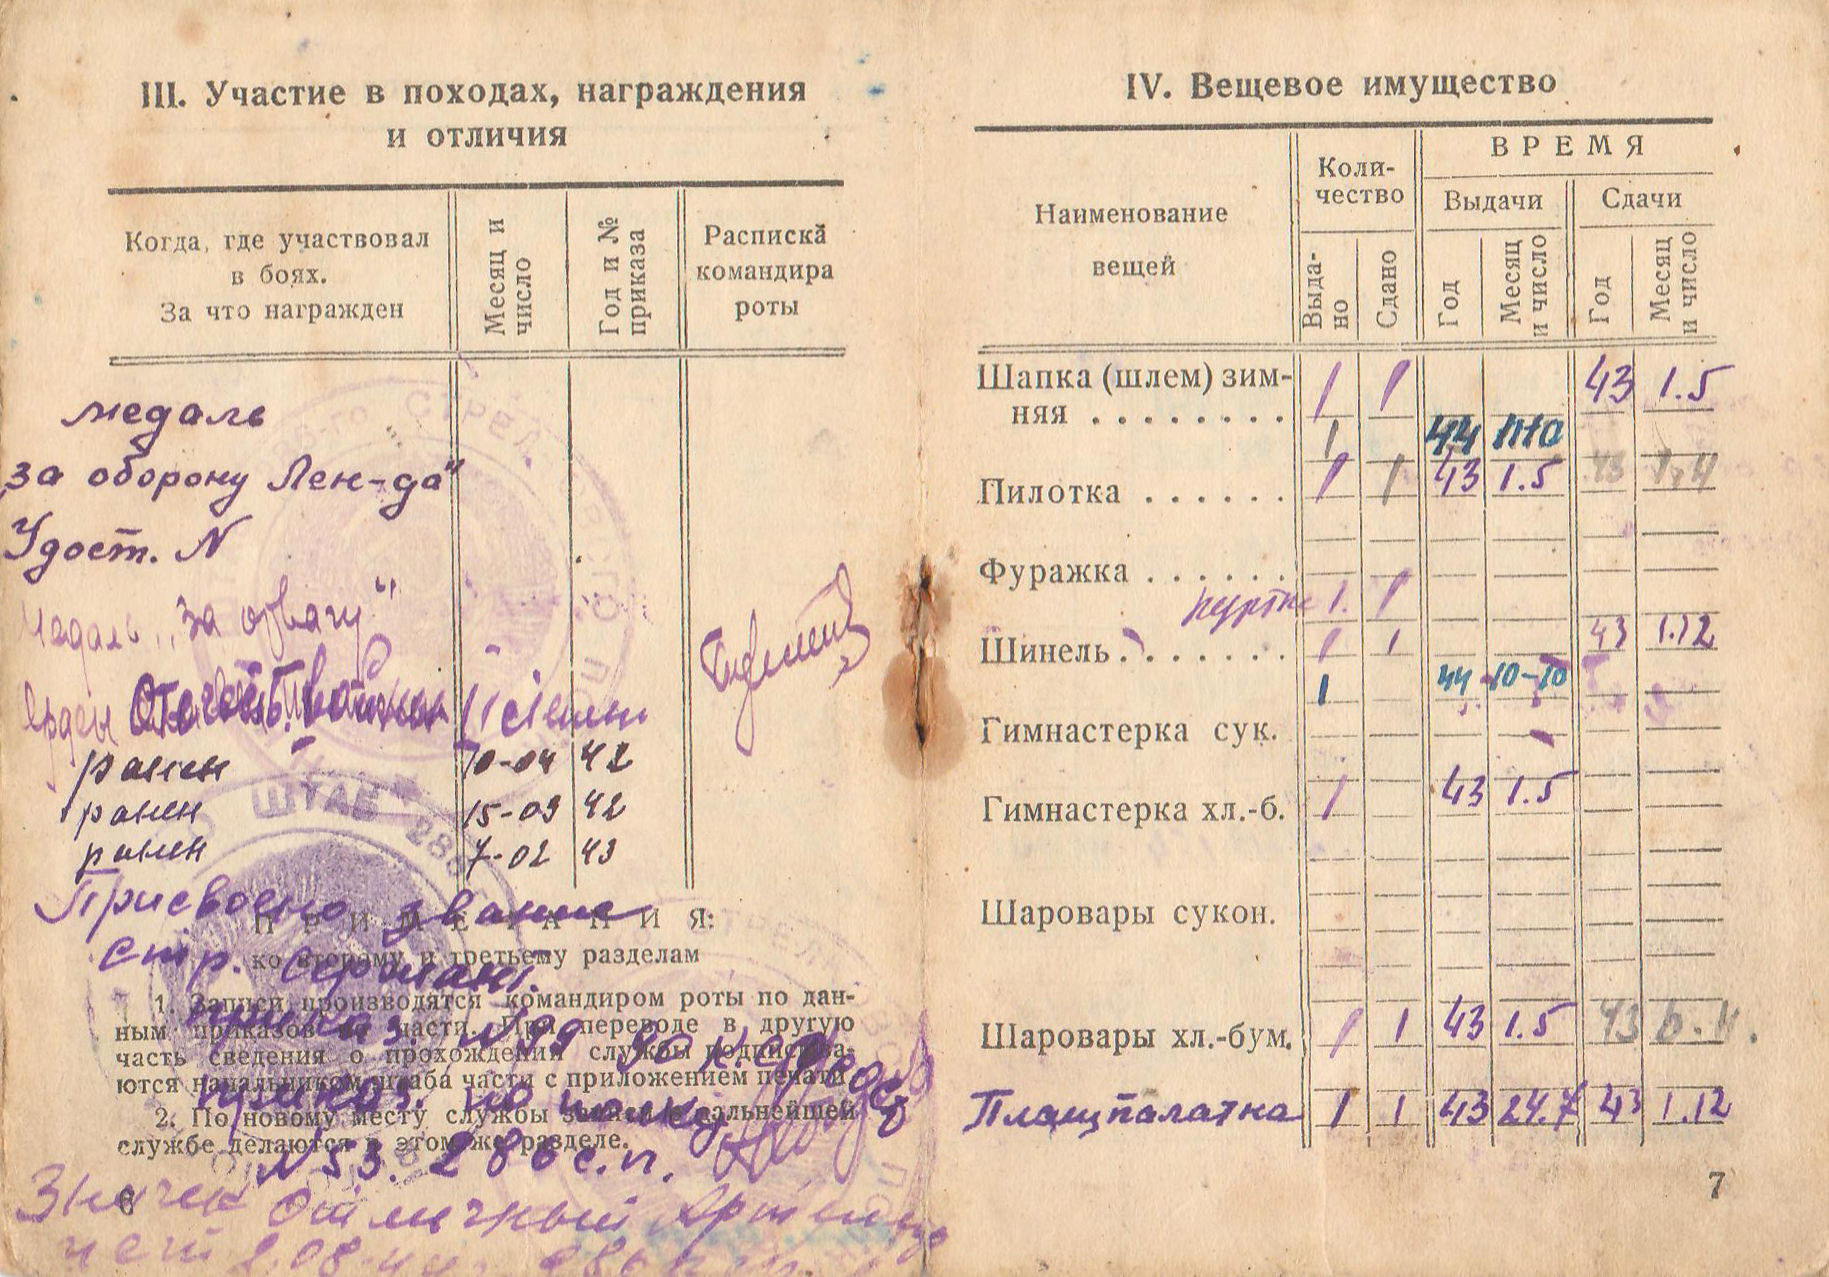 III. Участие в походах, награждения
и отличия
Когда, где участвовал
в боях.
За что награжден
Месяц и
число
Год и №
приказа
Расписка
командира
роты
медаль
„за оборону Лен-да"
Удост. N
Медаль „за отвагу"
Орден Отечеств. войны II степени
ранен 10-04 42
ранен 15-09 42
ранен 7-02 43
Присвоено звание
ст. сержант.
ПРИМЕЧАНИЯ:
ко второму и третьему разделам
1. Записи производятся командиром роты по дан-
ным приказов по части. При переводе в другую
часть сведения о прохождении службы подписыва-
ются начальником штаба части с приложением печати.
2. По новому месту службы записи о дальнейшей
службе делаются в этом же разделе.
приказ. по полку
N 53. 286 с.п.
Значек Отличный Артилле
6
ШТАБ 286
СТРЕЛ.
IV. Вещевое имущество
Наименование
вещей
Коли-
чество
ВРЕМЯ
Выдачи
Сдачи
Выда-
но
Сдано
Год
Месяц
и число
Год
Месяц
и число
Шапка (шлем) зим-
няя . . . . . . . . 1 1 43 1.5
1 44
Пилотка . . . . . . 1 1 43 1.5 43
Фуражка . . . . . .
куртка 1. 1
Шинель . . . . . . . 1 1 43 1.12
1 44 10-10
Гимнастерка сук.
Гимнастерка хл.-б. 1 43 1.5
Шаровары сукон.
Шаровары хл.-бум. 1 1 43 1.5 43
Плащпалатка 1 1 43 24.7 43 1.12
7